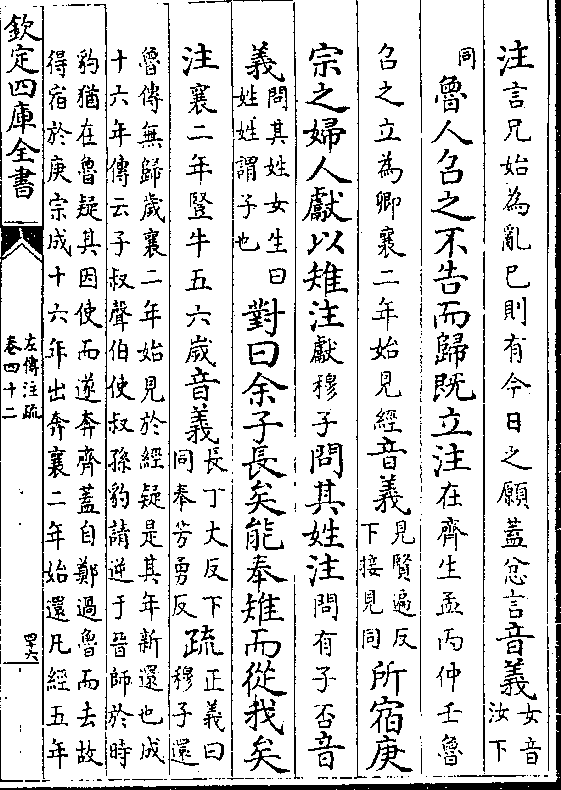 注言兄始為亂已則有今日之願蓋忿言音義女音汝下
同魯人召之不告而歸既立注在齊生孟丙仲壬魯
召之立為卿襄二年始見經音義見賢遍反下接見同所宿庚
宗之婦人獻以雉注獻穆子問其姓注問有子否音
義問其姓女生曰姓姓謂子也對曰余子長矣能奉雉而從我矣
注襄二年豎牛五六歲音義長丁大反下同奉芳勇反疏正義曰穆子還
魯傳無歸歲襄二年始見於經疑是其年新還也成
十六年傳云子叔聲伯使叔孫豹請逆于晉師於時
豹猶在魯疑其因使而遂奔齊蓋自鄭過魯而去故
得宿於庚宗成十六年出奔襄二年始還凡經五年
欽定四庫全書
左傳注疏
卷四十二
四六